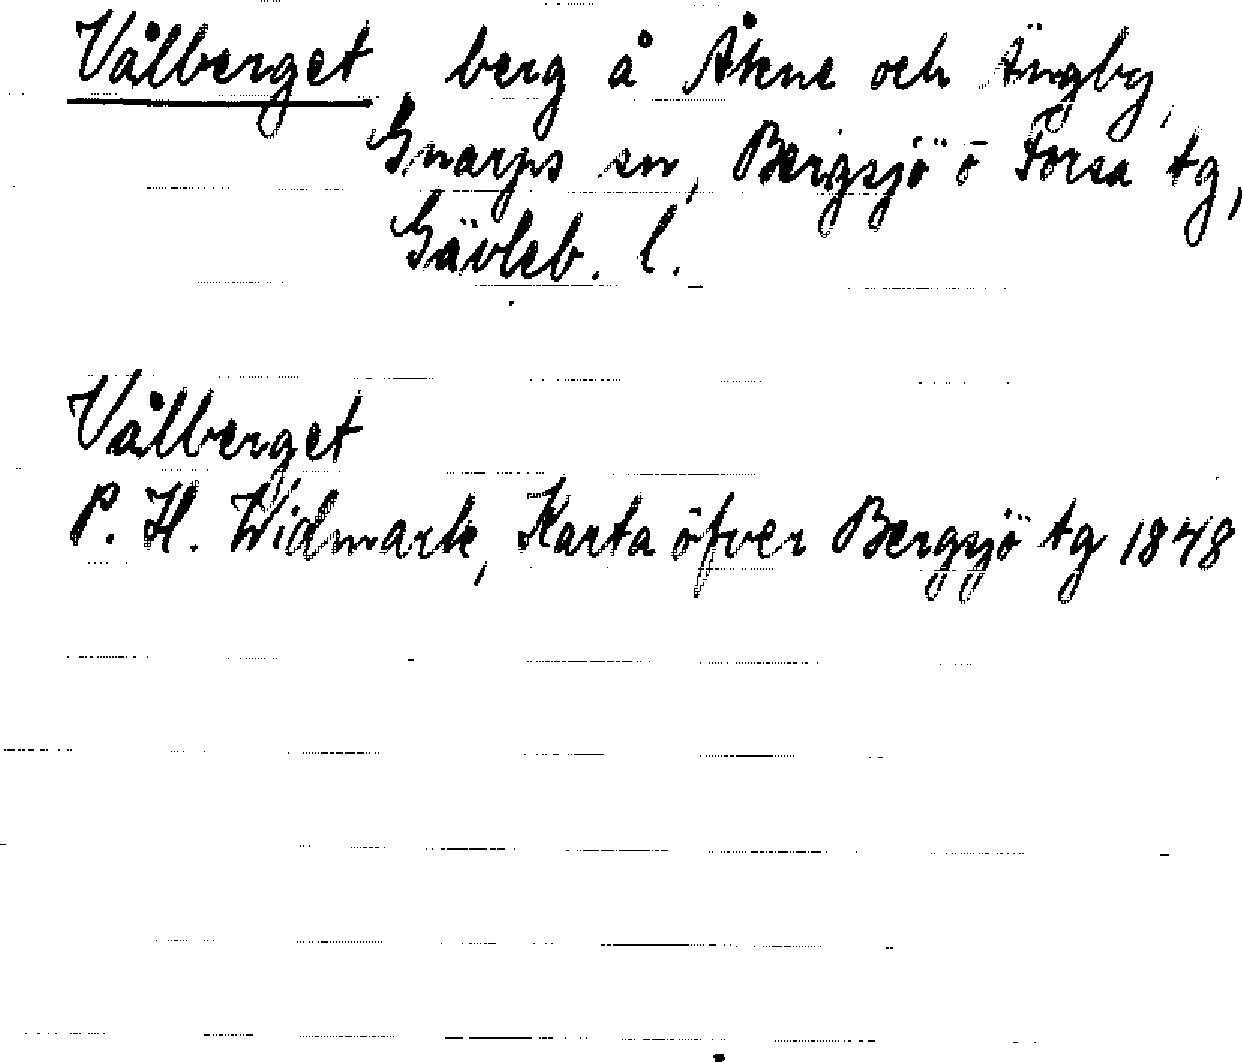 Vålberget, berg å Åkne och Ängby,
Gnarps sn, Bergsjö o Forsa tg,
Gävleb. l.
Vålberget
P. H. Widmark, Karta öfver Bergsjö tg 1848